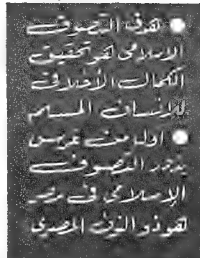 ● هدف التصوف
الإسلامى هو تحقيق
الكمال الأخلاقى
للإنسان المسلم
● أول من غرس
بذور التصوف
الإسلامى فى مصر
هو ذو النون المصرى